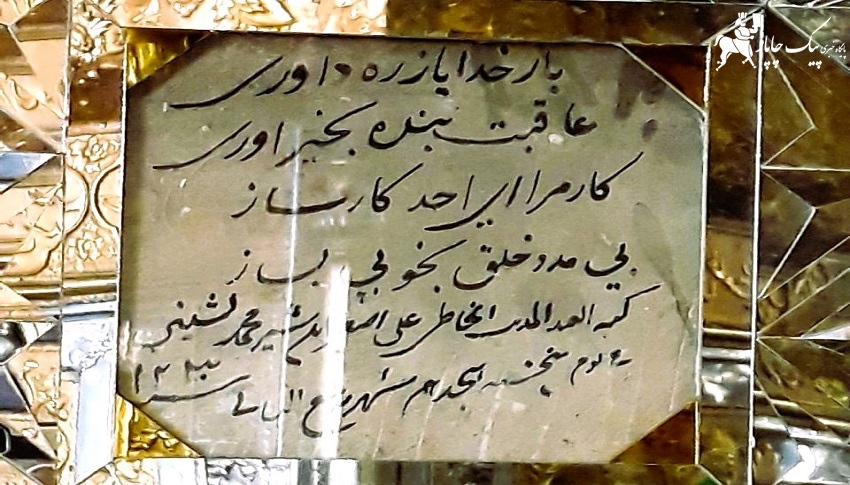 پایگاه خبری پیک چاپار
بار خدایا ز ره داوری
عاقبت بنده بخیر اوری
کار مرا ای احد کارساز
بی مدد خلق بخوبی بساز
کتبه العبد المذنب الخاطی علی اصغر ابن شیر محمد
یوم پنجشنبه هیجدهم شهر ربیع الثانی سنه